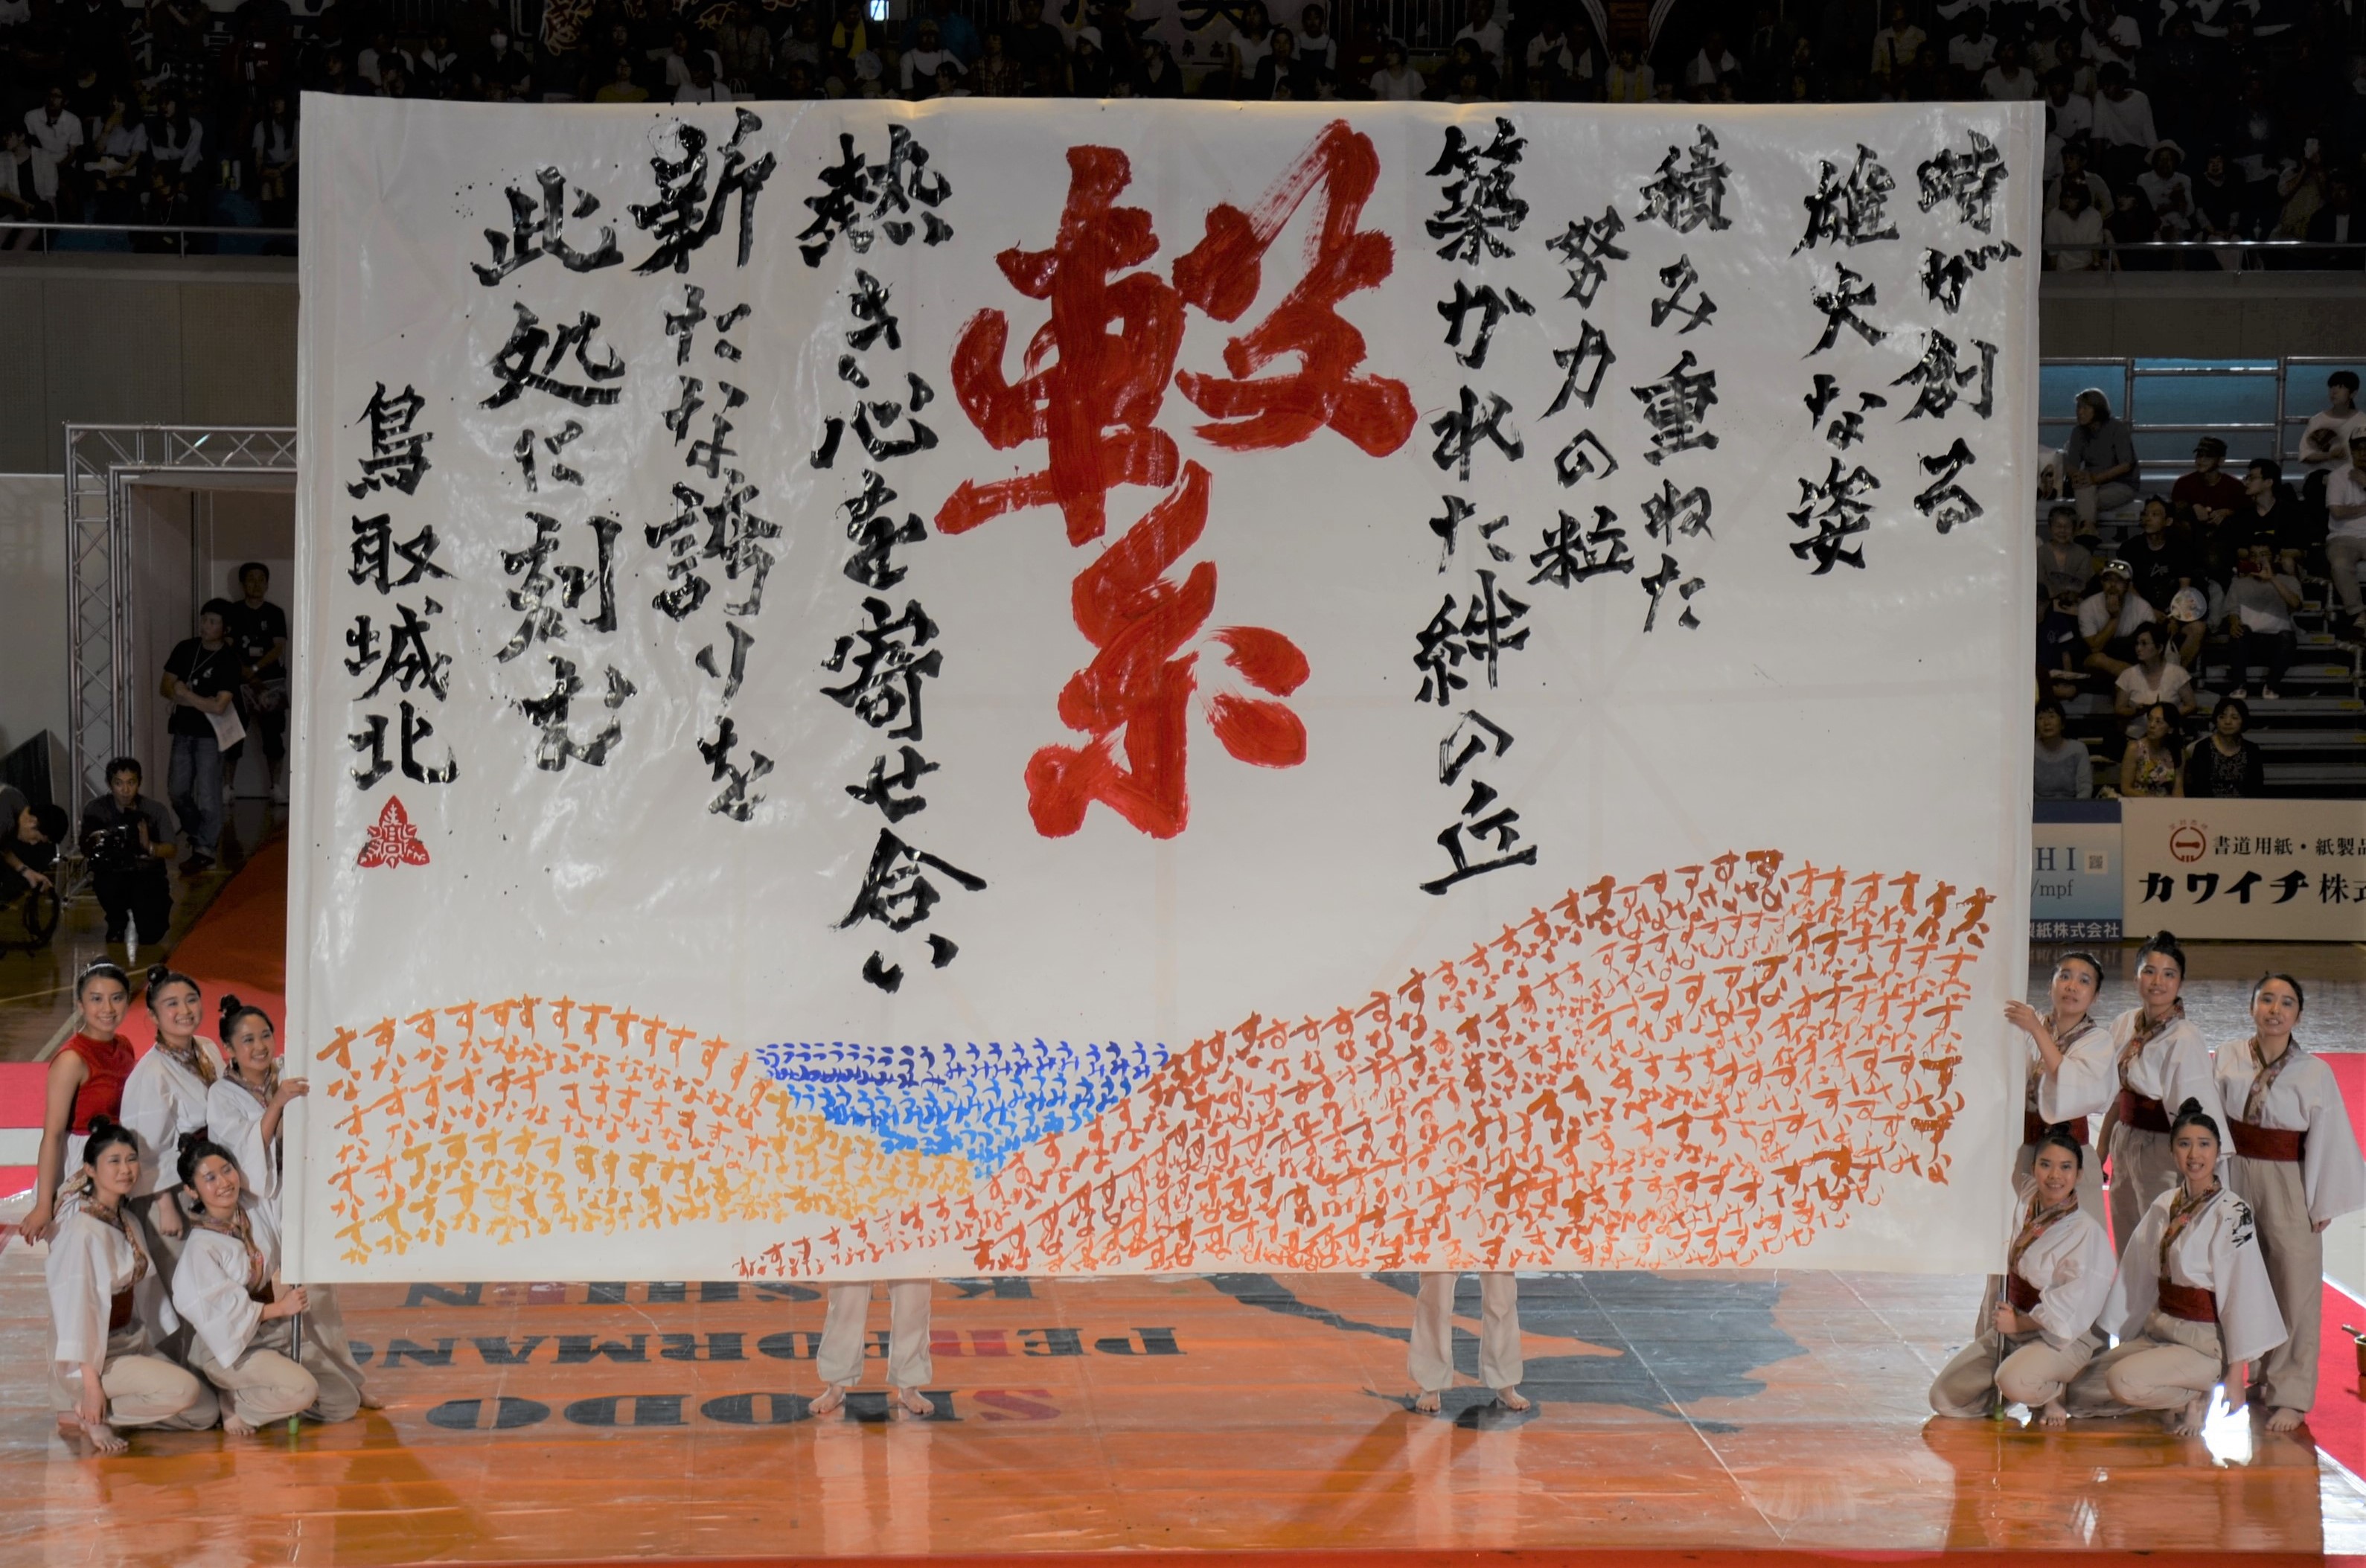 時が創る
雄大な姿
積み重ねた
努力の粒
築かれた絆の丘
繋
熱き心を寄せ合い
新たな誇りを
此処に刻む
鳥取城北
高
すな
うみ
書道用紙・紙製品
カワイチ 株式
HI
/mpf
製紙株式会社
SHODO
PERFORMANC